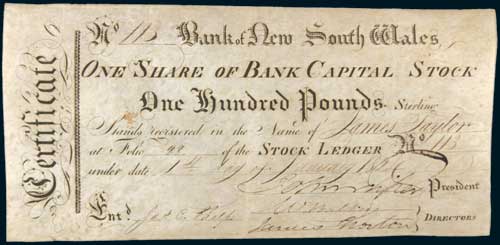 Certificate
No 113 Bank of New South Wales
ONE SHARE OF BANK CAPITAL STOCK
One Hundred Pounds Sterling
Stands registered in the Name of James Taylor
at Folio 99 of the STOCK LEDGER No 113
under date 1st day of January
President
Ent'd Jas
James Norton DIRECTORS